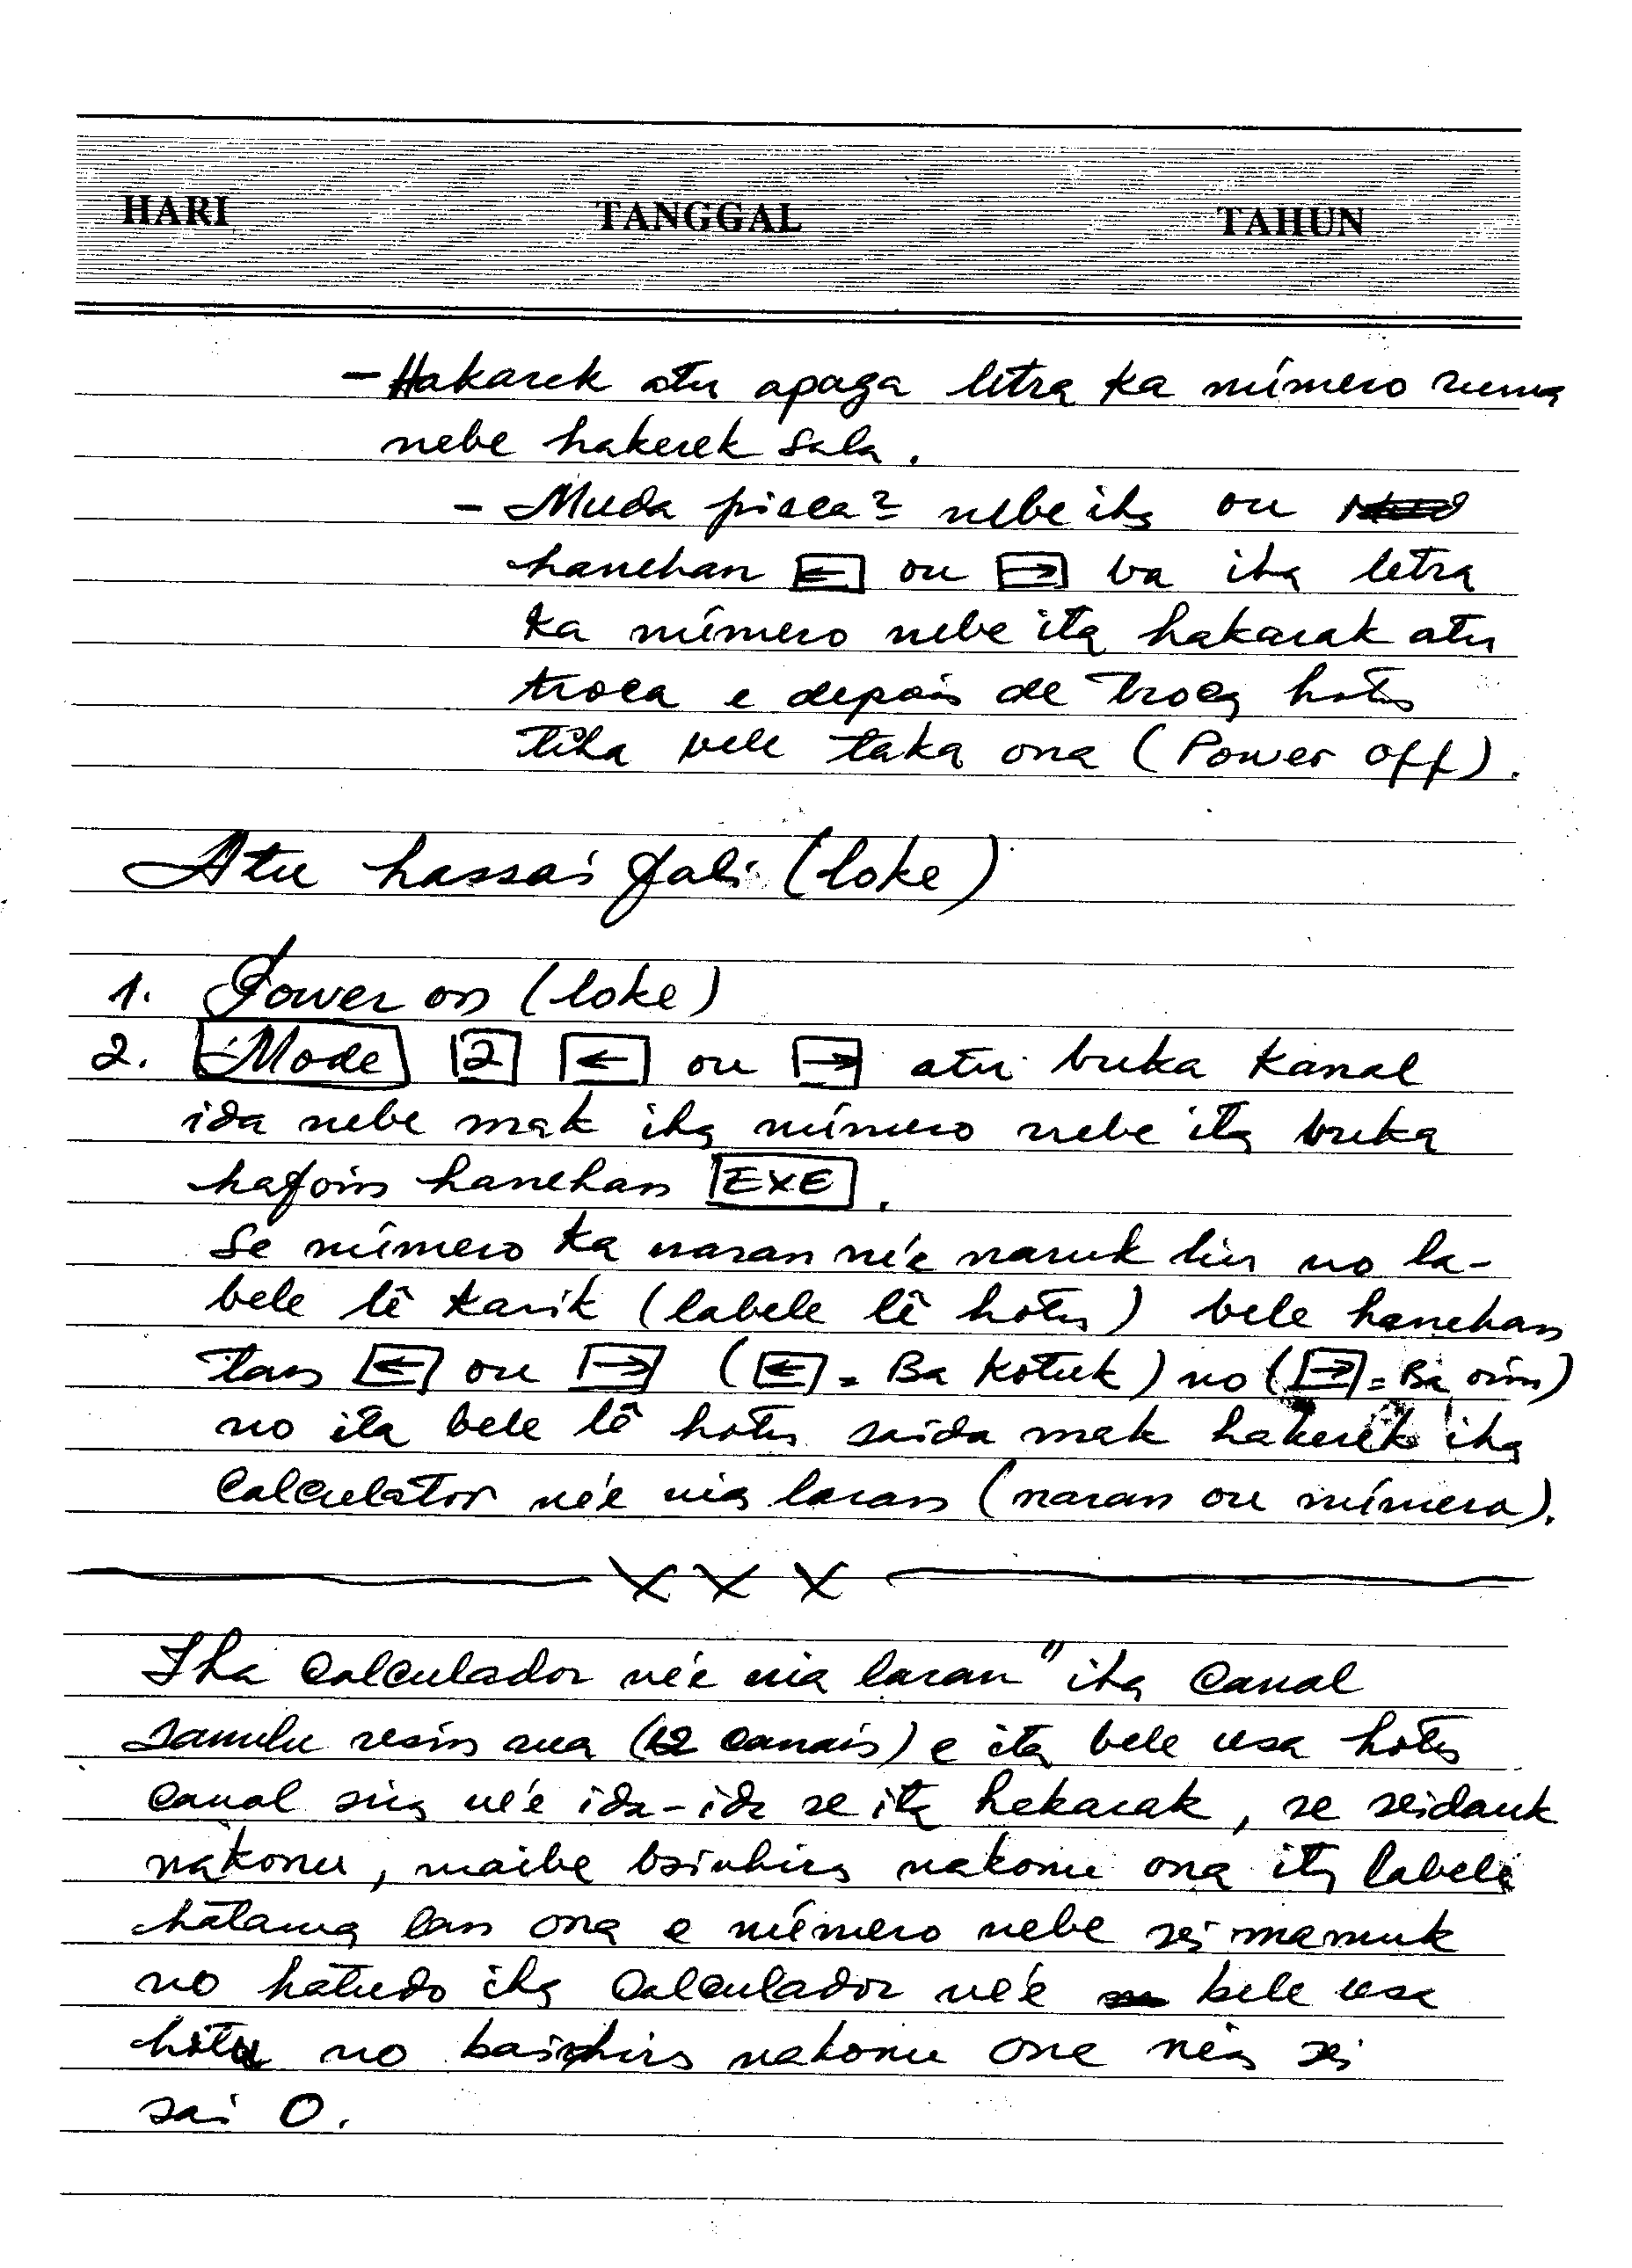 HARI TANGGAL TAHUN
- Hakarek atu apaga letra ka número ruma
nebe hakerek sala.
- Muda pisca2 nebe iha ou
hanehan [←] ou [→] ba iha letra
ka número nebe ita hakarak atu
troca e depois de troca hotu
tiha bele taka ona (Power off).
Atu hassai fali (loke)
1. Power on (loke)
2. [Mode] [2] [←] ou [→] atu buka Kanal
ida nebe mak iha número nebe ita buka
hafoin hanehan [EXE].
Se número ka naran né'e naruk liu no la-
bele lê karik (labele lê hotu) bele hanehan
tan [←] ou [→] ([←] = Ba Kotuk) no ([→] = Ba oin)
no ita bele lê hotu saida mak hakerek iha
Calculator né'e nia laran (naran ou número).
x x x
Iha Calculador né'e nia laran" iha Canal
sanulu resin rua (12 Canais) e ita bele usa hotu
Canal sira né'e ida-ida se ita hakarak, se seidauk
nakonu, maibe bainhira nakonu ona ita labele
hatama tan ona e número nebe sei mamuk
no hatudo iha Calculador né'e bele usa
hotu no bainhira nakonu ona nia sei
sai 0.